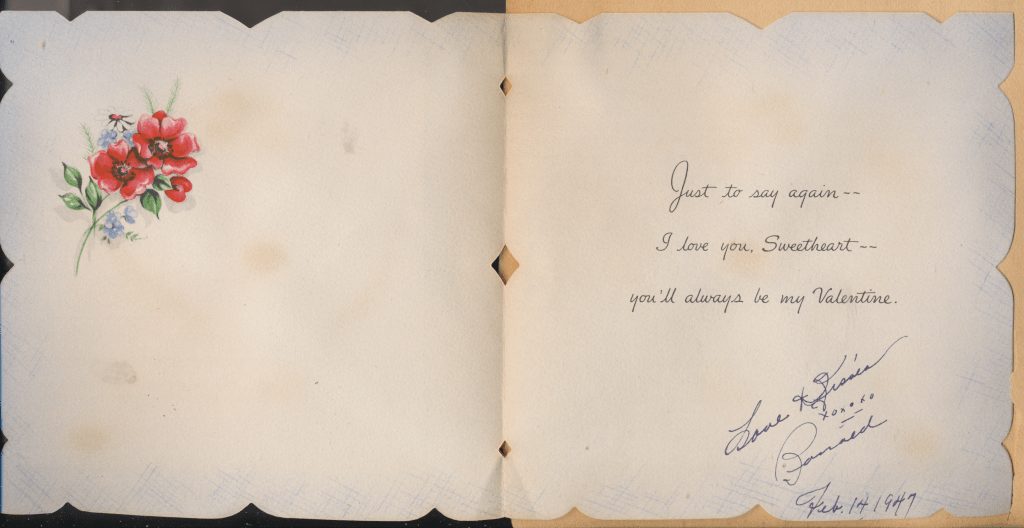 Just to say again--
I love you, Sweetheart--
you'll always be my Valentine.
Love & Kisses
xoxoxo
Donald
Feb. 14 1947